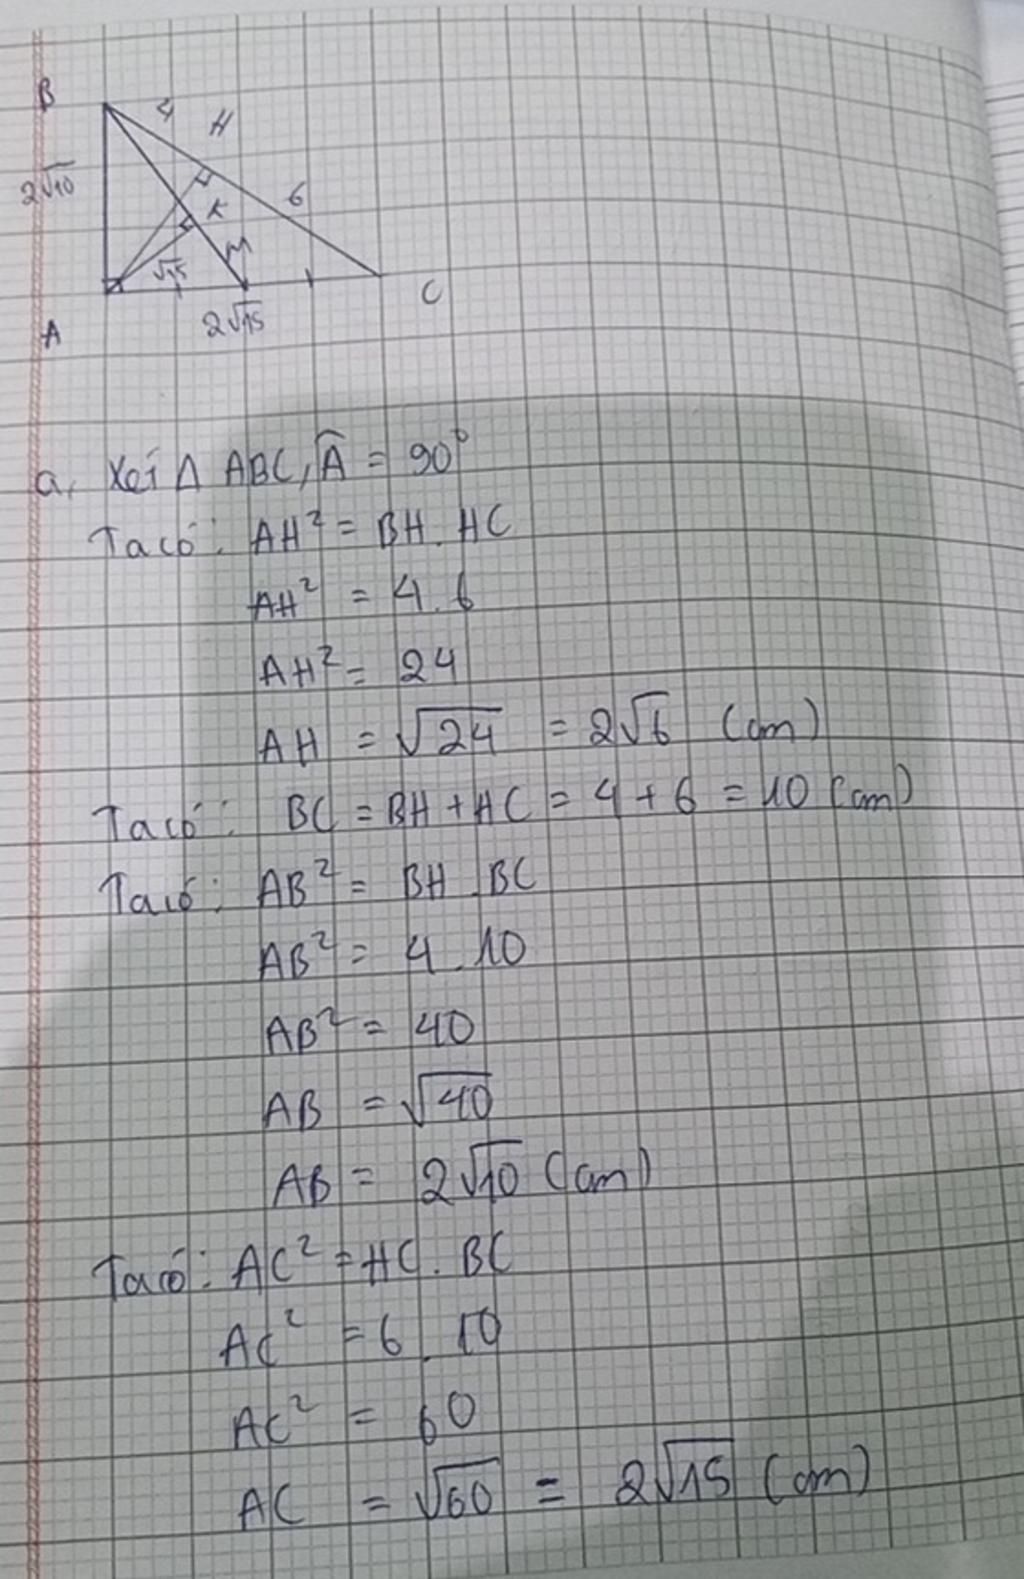 B
4
H
2√10
6
K
M
√15
C
2√15
A
a, Xét Δ ABC, Â = 90°
Ta có: AH² = BH . HC
AH² = 4 . 6
AH² = 24
AH = √24 = 2√6 (cm)
Ta có: BC = BH + HC = 4 + 6 = 10 (cm)
Ta có: AB² = BH . BC
AB² = 4 . 10
AB² = 40
AB = √40
AB = 2√10 (cm)
Ta có: AC² = HC . BC
AC² = 6 . 10
AC² = 60
AC = √60 = 2√15 (cm)